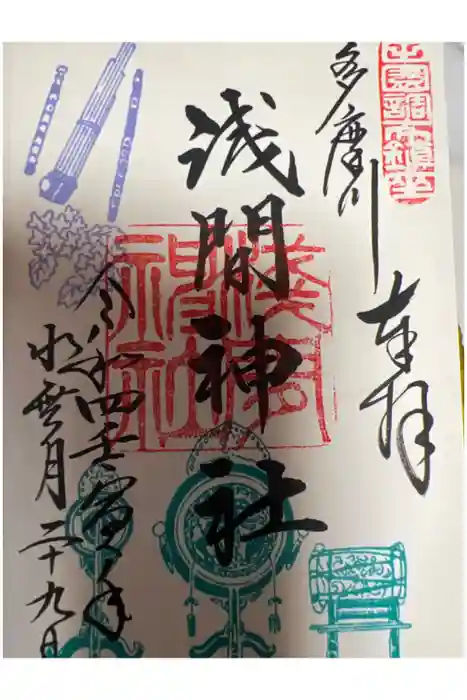 多摩川
奉拝
浅間神社
令和四壬寅年
水無月二十九日